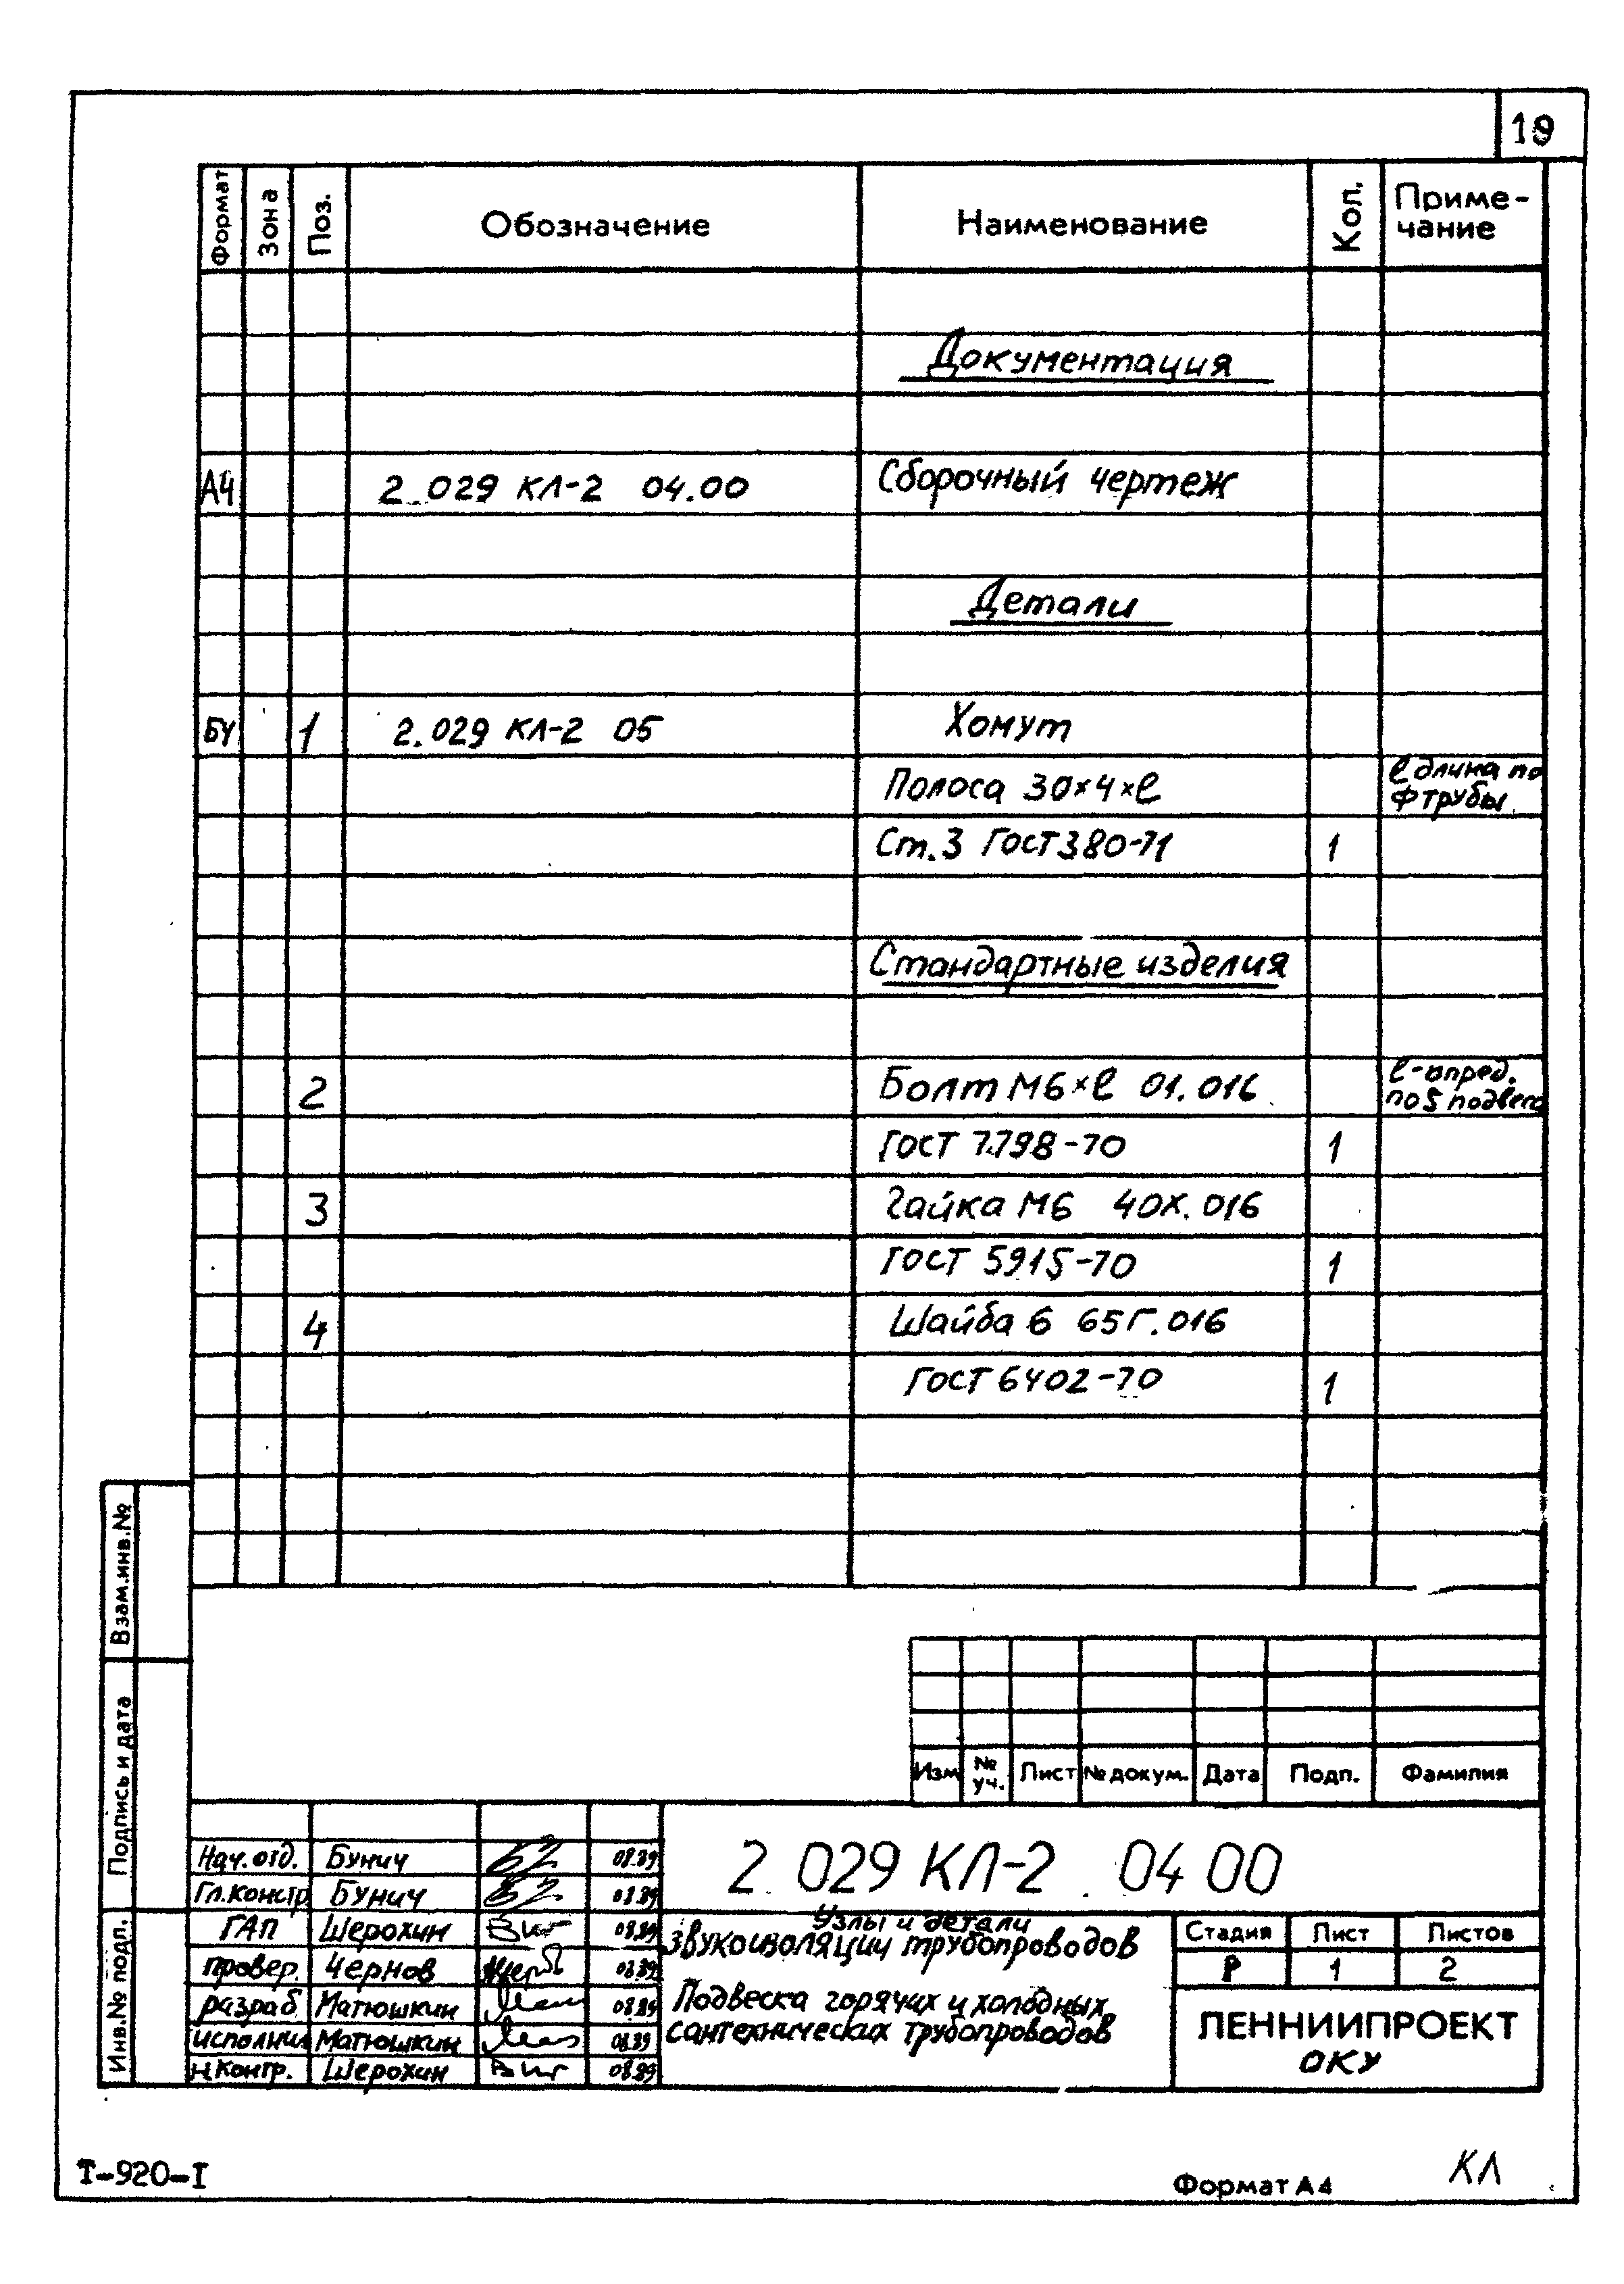 19
Формат Зона Поз. Обозначение Наименование Кол. Приме-
чание
Документация
А4 2.029 КЛ-2 04.00 Сборочный чертеж
Детали
БЧ 1 2.029 КЛ-2 05 Хомут
Полоса 30×4×ℓ ℓ длина по
ф трубы
Ст.3 ГОСТ 380-71 1
Стандартные изделия
2 Болт М6×ℓ 01.016 ℓ-опред.
по S подвеса
ГОСТ 7798-70 1
3 Гайка М6 40Х.016
ГОСТ 5915-70 1
4 Шайба 6 65Г.016
ГОСТ 6402-70 1
Взам.инв.№
Подпись и дата
Инв.№ подл.
Изм № уч. Лист № докум. Дата Подп. Фамилия
Нач.отд. Бунич 08.89
Гл.констр Бунич 08.89
ГАП Шерохин 08.89
провер. Чернов 08.89
разраб Матюшкин 08.89
исполнил Матюшкин 08.89
Н контр. Шерохин 08.89
2.029 КЛ-2 04 00
Узлы и детали
звукоизоляции трубопроводов
Подвеска горячих и холодных
сантехнических трубопроводов
Стадия Лист Листов
Р 1 2
ЛЕННИИПРОЕКТ
ОКУ
Т-920-I
Формат А4
КЛ